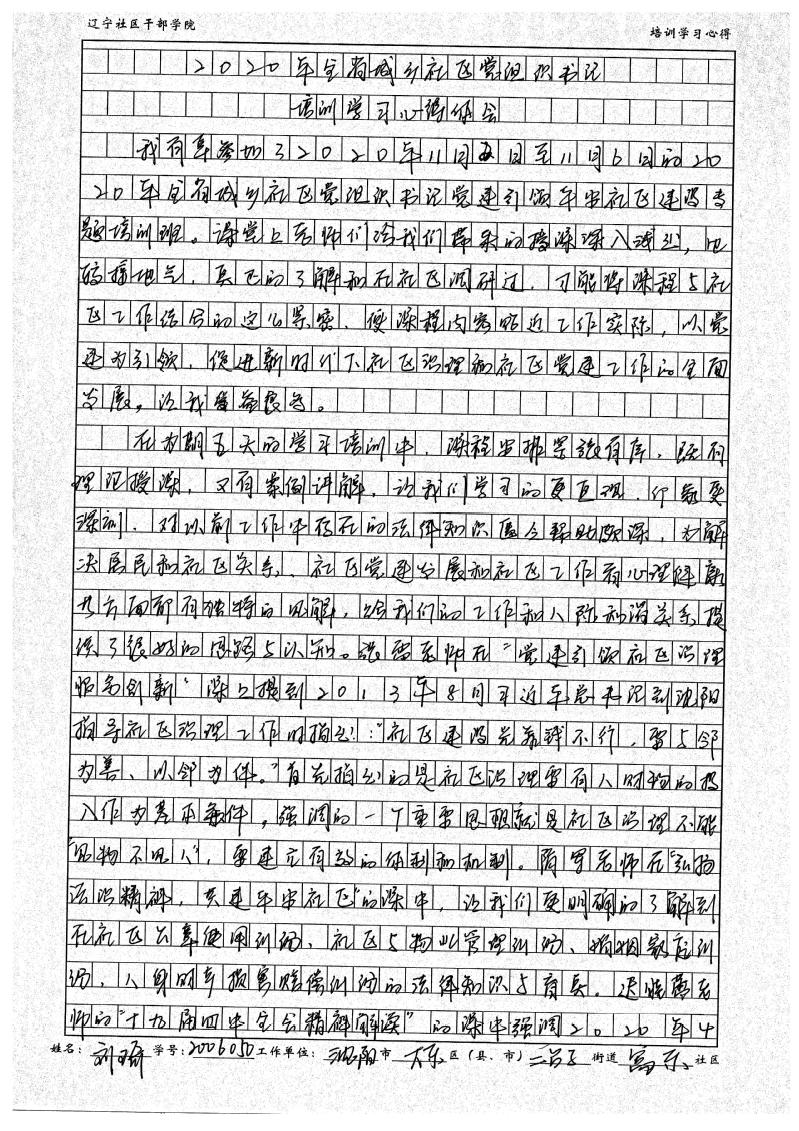 辽宁社区干部学院
培训学习心得
2020年全省城乡社区党组织书记
培训学习心得体会
我有幸参加了2020年11月2日至11月6日的20
20年全省城乡社区党组织书记党建引领平安社区建设专
题培训班。课堂上老师们给我们带来的授课深入浅出,也
较接地气,真正的了解和在社区调研过,才能将课程与社
区工作结合的这么紧密、使课程内容贴近工作实际,以党
建为引领,促进新时代下社区治理和社区党建工作的全面
发展,让我受益良多。
在为期五天的学习培训中,课程安排紧张有序,既有
理论授课,又有案例讲解,让我们学习的更直观、印象更
深刻、对以前工作中存在的法律知识匮乏帮助颇深,为解
决居民和社区关系、社区党建发展和社区工作者心理健康
等方面都有独特的见解,给我们的工作和人际和谐关系提
供了很好的思路与认知。张雷老师在“党建引领社区治理
服务创新”课上提到2013年8月习近平总书记到沈阳
指导社区治理工作时指出:“社区建设光靠钱不行,要与邻
为善、以邻为伴。”首先指出的是社区治理要有人财物的投
入作为基本条件,强调的一个重要思想就是社区治理不能
“见物不见人”,要建立有效的体制和机制。隋军老师在“弘扬
法治精神,共建平安社区”的课中,让我们更明确的了解到
在社区公章使用纠纷、社区与物业管理纠纷、婚姻家庭纠
纷、人身财产损害赔偿纠纷的法律知识与有关。逯晓蕾老
师的“十九届四中全会精神解读”的课中强调2020年4
姓名:刘琦 学号:2006050 工作单位:沈阳市 大东 区(县、市) 二台子 街道 富东 社区